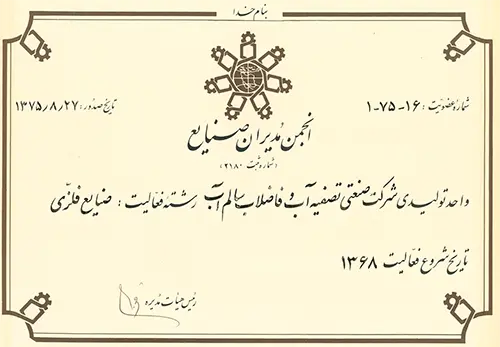 بنام خدا
شماره عضویت : ۱۶-۷۵-۱
تاریخ صدور : ۱۳۷۵/۸/۲۷
انجمن مدیران صنایع
(شماره ثبت ۲۱۸۰)
واحد تولیدی شرکت صنعتی تصفیه آب و فاضلاب سالم آب رشته فعالیت : صنایع فلزی
تاریخ شروع فعالیت ۱۳۶۸
رئیس هیات مدیره